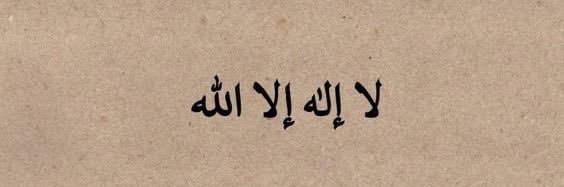 لا إلٰه إلا الله